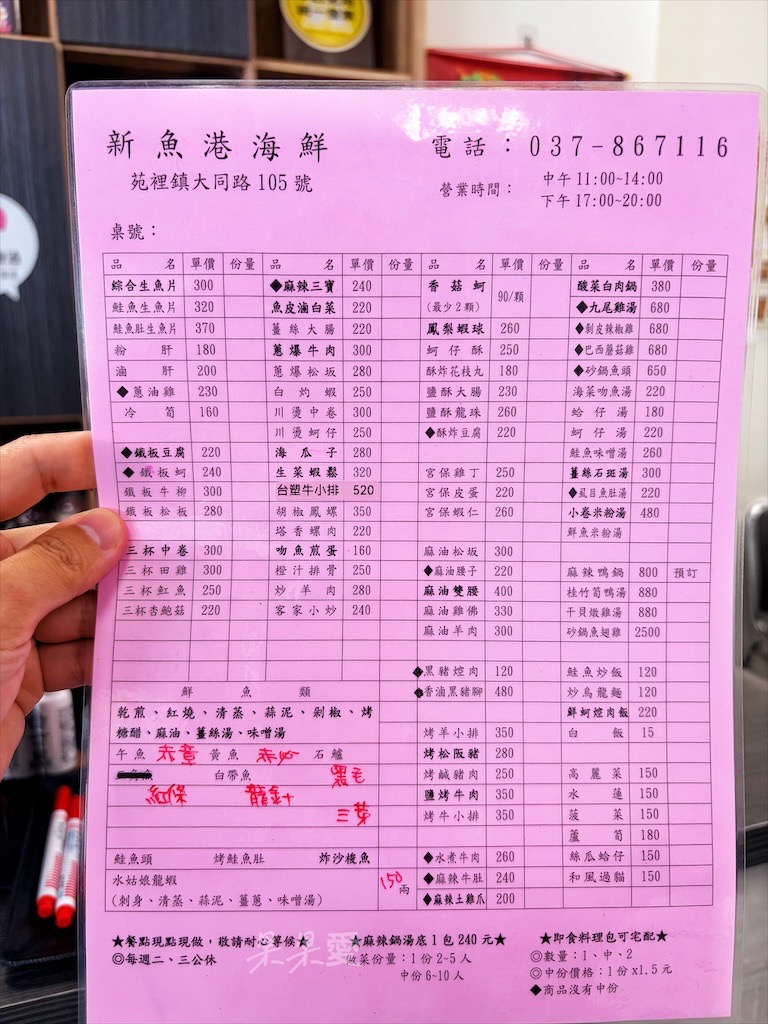 新魚港海鮮
電話：037-867116
苑裡鎮大同路105號
營業時間：
中午11:00~14:00
下午17:00~20:00
桌號：
品名 單價 份量 品名 單價 份量 品名 單價 份量 品名 單價 份量
綜合生魚片 300 ◆麻辣三寶 240 香菇蚵 90/顆 酸菜白肉鍋 380
鮭魚生魚片 320 魚皮滷白菜 220 (最少2顆) ◆九尾雞湯 680
鮭魚肚生魚片 370 薑絲大腸 220 鳳梨蝦球 260 ◆剝皮辣椒雞 680
粉肝 180 蔥爆牛肉 300 蚵仔酥 250 ◆巴西蘑菇雞 680
滷肝 200 蔥爆松坂 280 酥炸花枝丸 180 ◆砂鍋魚頭 650
◆蔥油雞 230 白灼蝦 250 鹽酥大腸 230 海菜吻魚湯 220
冷筍 160 川燙中卷 300 鹽酥龍珠 260 蛤仔湯 180
川燙蚵仔 250 ◆酥炸豆腐 220 蚵仔湯 220
◆鐵板豆腐 220 海瓜子 280 鮭魚味噌湯 260
◆鐵板蚵 240 生菜蝦鬆 320 宮保雞丁 250 薑絲石斑湯 300
鐵板牛柳 300 台塑牛小排 520 宮保皮蛋 220 ◆虱目魚肚湯 220
鐵板松板 280 胡椒鳳螺 350 宮保蝦仁 260 小卷米粉湯 480
塔香螺肉 220 鮮魚米粉湯
三杯中卷 300 吻魚煎蛋 160 麻油松坂 300
三杯田雞 300 橙汁排骨 250 ◆麻油腰子 220 麻辣鴨鍋 800 預訂
三杯魟魚 250 炒羊肉 280 麻油雙腰 400 桂竹筍鴨湯 880
三杯杏鮑菇 220 客家小炒 240 麻油雞佛 330 干貝燉雞湯 880
麻油羊肉 300 砂鍋魚翅雞 2500
◆黑豬焢肉 120 鮭魚炒飯 120
鮮魚類 ◆香滷黑豬腳 480 炒烏龍麵 120
乾煎、紅燒、清蒸、蒜泥、剁椒、烤 鮮蚵焢肉飯 220
糖醋、麻油、薑絲湯、味噌湯 烤羊小排 350 白飯 15
午魚 赤章 黃魚 石鱸 烤松阪豬 280
白帶魚 黑毛 烤鹹豬肉 250 高麗菜 150
紅條 龍針 鹽烤牛肉 350 水蓮 150
三葉 烤牛小排 350 菠菜 150
蘆筍 180
鮭魚頭 烤鮭魚肚 炸沙梭魚 ◆水煮牛肉 260 絲瓜蛤仔 150
水姑娘龍蝦 150兩 ◆麻辣牛肚 240 和風過貓 150
(刺身、清蒸、蒜泥、薑蔥、味噌湯) ◆麻辣土雞爪 200
★餐點現點現做，敬請耐心等候★ ★麻辣鍋湯底1包240元★ ★即食料理包可宅配★
◎每週二、三公休 做菜份量：1份2~5人 ◎數量：1、中、2
中份6~10人 ◎中份價格：1份x1.5元
◆商品沒有中份
果果愛